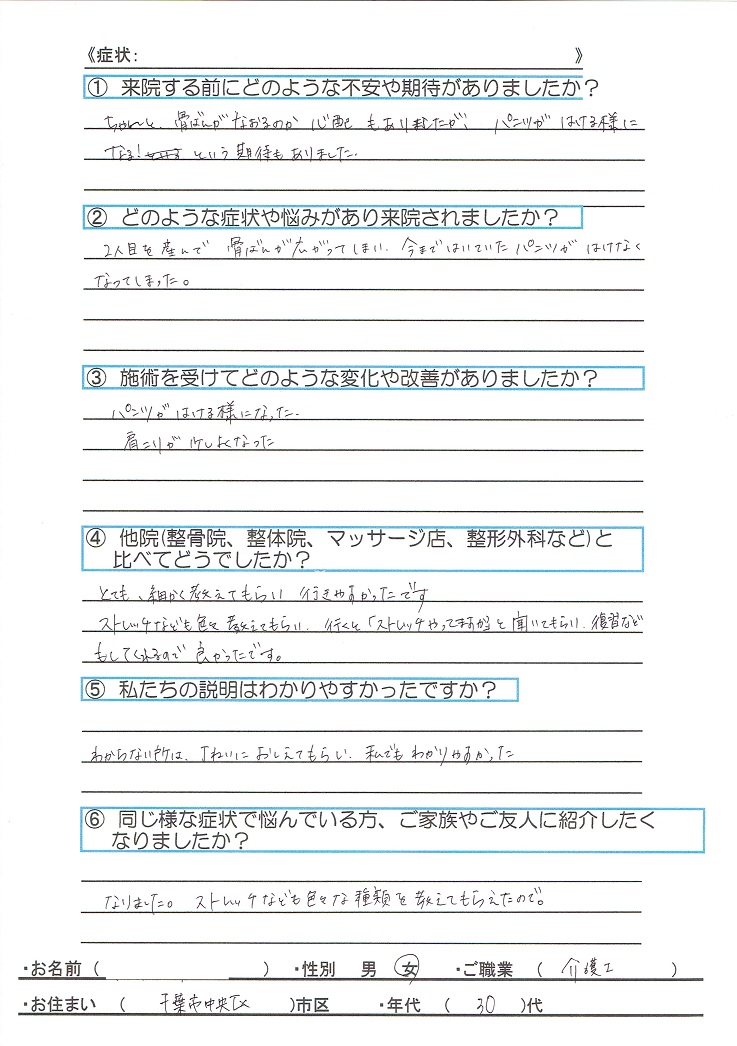 《症状: 》
① 来院する前にどのような不安や期待がありましたか？
ちゃんと、骨ばんがなおるのか 心配 もありましたが、 パンツが はける様に
なる! という期待もありました.
② どのような症状や悩みがあり来院されましたか？
2人目を産んで 骨ばんが広がってしまい. 今まではいていたパンツが はけなく
なってしまった。
③ 施術を受けてどのような変化や改善がありましたか？
パンツが はける様になった.
肩こりが少しよくなった
④ 他院(整骨院、整体院、マッサージ店、整形外科など)と
比べてどうでしたか？
とても、細かく教えてもらい 行きやすかったです
ストレッチなども色々教えてもらい. 行くと「ストレッチやってますか」と聞いてもらい. 復習など
もしてくれるので 良かったです。
⑤ 私たちの説明はわかりやすかったですか？
わからない所は、ていねいに おしえてもらい. 私でも わかりやすかった
⑥ 同じ様な症状で悩んでいる方、ご家族やご友人に紹介したく
なりましたか？
なりました。 ストレッチなども色々な種類を教えてもらえたので。
・お名前 ( ) ・性別 男 女 ・ご職業 ( 介護士 )
・お住まい ( 千葉市中央区 )市区 ・年代 ( 30 )代